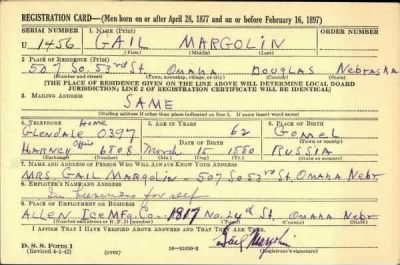 REGISTRATION CARD—(Men born on or after April 28, 1877 and on or before February 16, 1897)
SERIAL NUMBER 1. NAME (Print) ORDER NUMBER
U 1456 GAIL MARGOLIN
(First) (Middle) (Last)
2. PLACE OF RESIDENCE (Print)
507 So. 53rd St. Omaha Douglas Nebraska
(Number and street) (Town, township, village, or city) (County) (State)
[THE PLACE OF RESIDENCE GIVEN ON THE LINE ABOVE WILL DETERMINE LOCAL BOARD
JURISDICTION; LINE 2 OF REGISTRATION CERTIFICATE WILL BE IDENTICAL]
3. MAILING ADDRESS
SAME
[Mailing address if other than place indicated on line 2. If same insert word same]
4. TELEPHONE 5. AGE IN YEARS 6. PLACE OF BIRTH
Home
Glendale 0397 62 Gomel
DATE OF BIRTH (Town or county)
Office
Harney 6808 March 15 1880 RUSSIA
(Exchange) (Number) (Mo.) (Day) (Yr.) (State or country)
7. NAME AND ADDRESS OF PERSON WHO WILL ALWAYS KNOW YOUR ADDRESS
MRS. GAIL MARGOLIN - 507 So 53rd St. Omaha Nebr.
8. EMPLOYER'S NAME AND ADDRESS
In business for self
9. PLACE OF EMPLOYMENT OR BUSINESS
ALLEN Ice Mfg. Co. 1817 No. 24th St. Omaha Nebr
(Number and street or R. F. D. number) (Town) (County) (State)
I AFFIRM THAT I HAVE VERIFIED ABOVE ANSWERS AND THAT THEY ARE TRUE.
D. S. S. Form 1 Gail Margolin
(Revised 4-1-42) (over) (Registrant's signature)